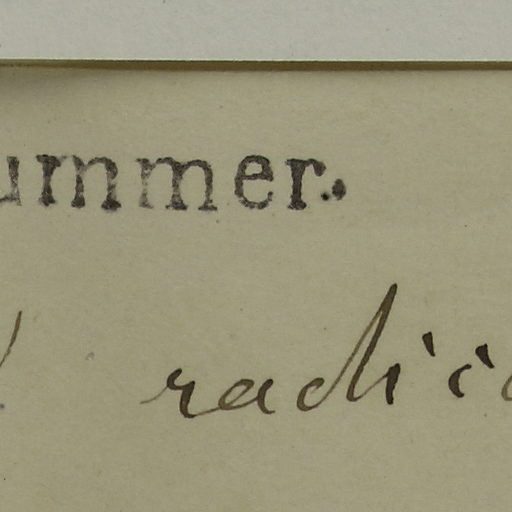 ummer.
radic